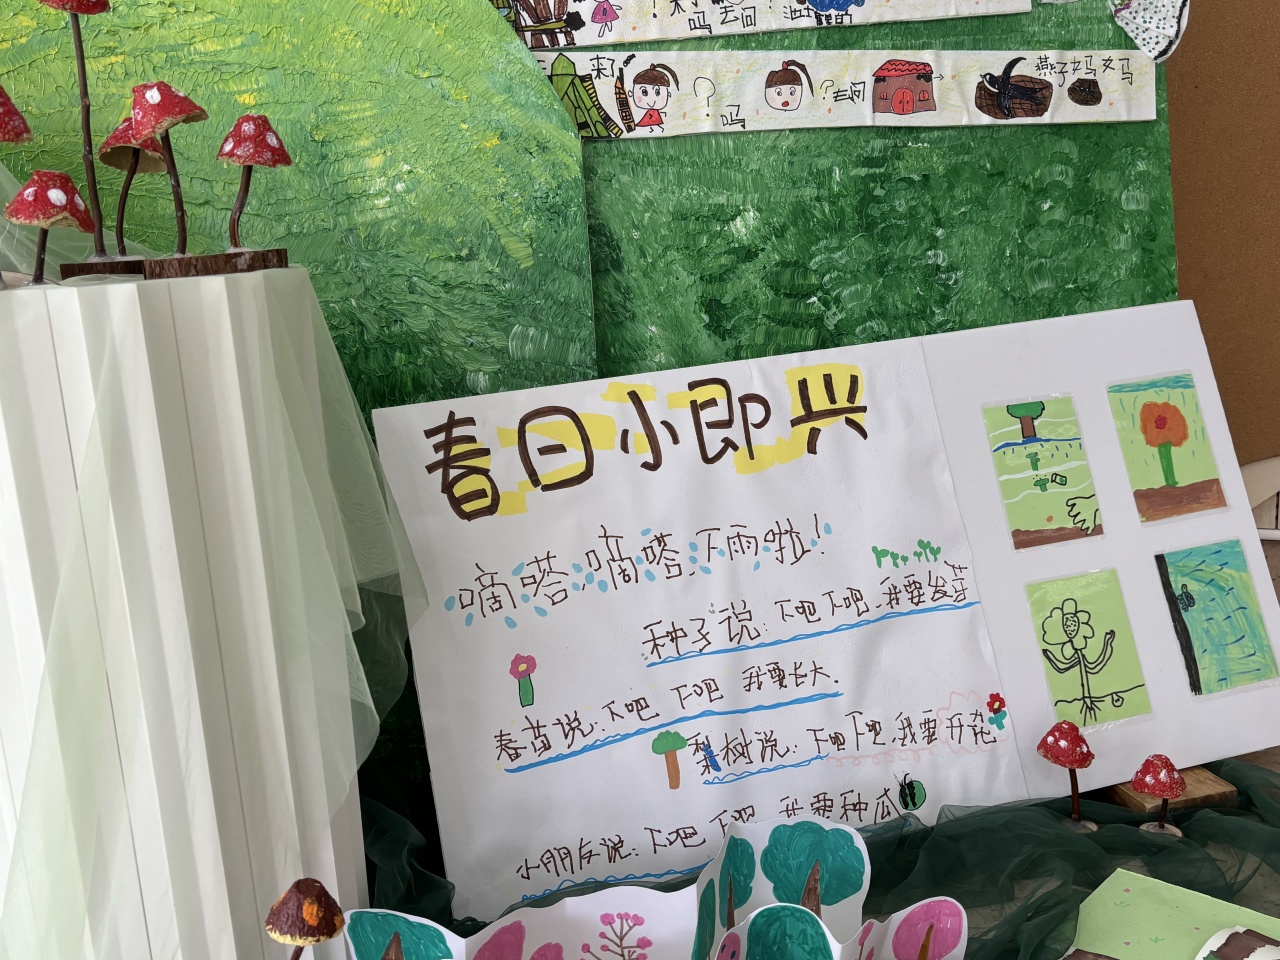 吗 去问
来了 ? 吗 ? 去问 燕子妈妈
春日小即兴
嘀嗒嘀嗒下雨啦!
种子说:下吧下吧,我要发芽
春苗说:下吧 下吧 我要长大.
梨树说:下吧下吧,我要开花
小朋友说:下吧 下吧 我要种瓜